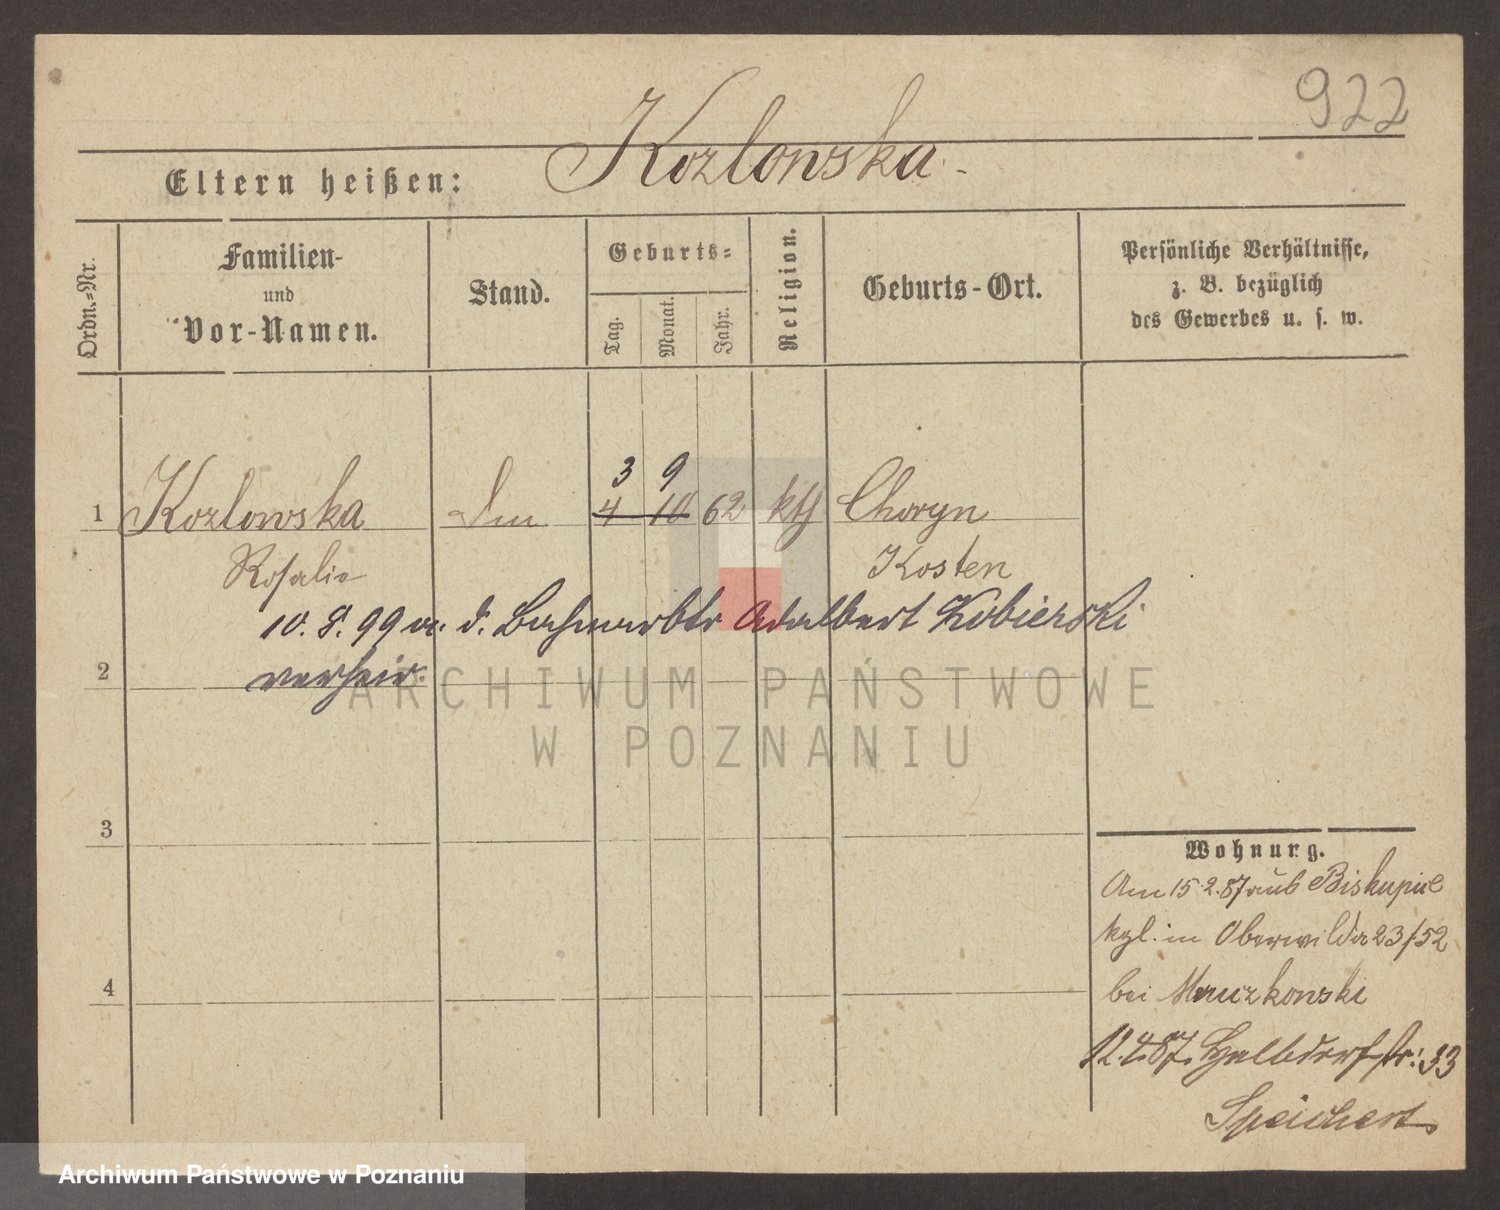 922
Kozlowska.
Eltern heißen:
Ordn.=Nr.
Familien-
und
Vor-Namen.
Stand.
Geburts=
Tag.
Monat.
Jahr.
Religion.
Geburts-Ort.
Persönliche Verhältnisse,
z. B. bezüglich
des Gewerbes u. s. w.
3 9
1 Kozlowska 4 10 62 kth Choryn
Rosalie Kosten
10. 8. 99 m. d. Bahnarbtr Adalbert Kobierski
2 verheir.
ARCHIWUM PAŃSTWOWE
W POZNANIU
3
4
Wohnung.
Am 15.2.87 aus Biskupice
kgl. in Oberwilda 23/52
bei
12.4.87. str. 33
Speichert
Archiwum Państwowe w Poznaniu